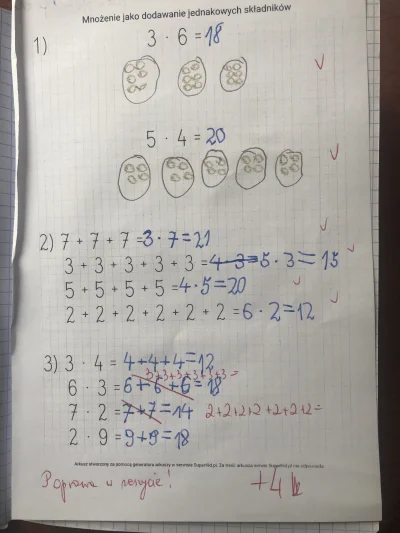 Mnożenie jako dodawanie jednakowych składników
1) 3 · 6 = 18
5 · 4 = 20
2) 7 + 7 + 7 = 3 · 7 = 21
3 + 3 + 3 + 3 + 3 = 4 · 3 = 5 · 3 = 15
5 + 5 + 5 + 5 = 4 · 5 = 20
2 + 2 + 2 + 2 + 2 + 2 = 6 · 2 = 12
3) 3 · 4 = 4+4+4=12
3+3+3+3+3+3=
6 · 3 = 6+6+6=18
7 · 2 = 7+7=14 2+2+2+2+2+2+2=
2 · 9 = 9+9=18
Arkusz stworzony za pomocą generatora arkuszy w serwisie SuperKid.pl. Za treść arkusza serwis SuperKid.pl nie odpowiada.
Poprawa w zeszycie! +4